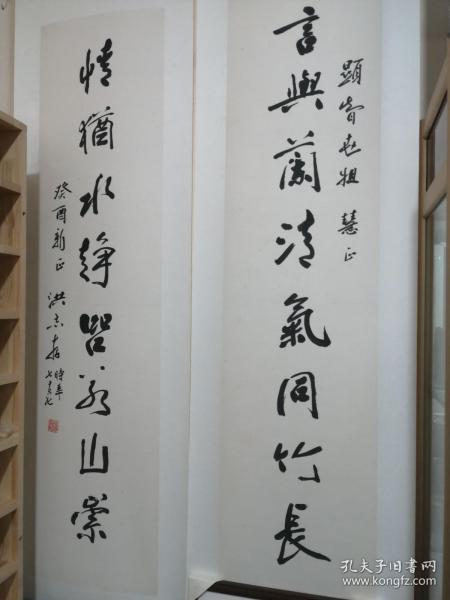 言與蘭清氣同竹長
慧正
情猶水静品若山崇
癸酉新正 洪志 時年七十
孔夫子旧书网
www.kongfz.com